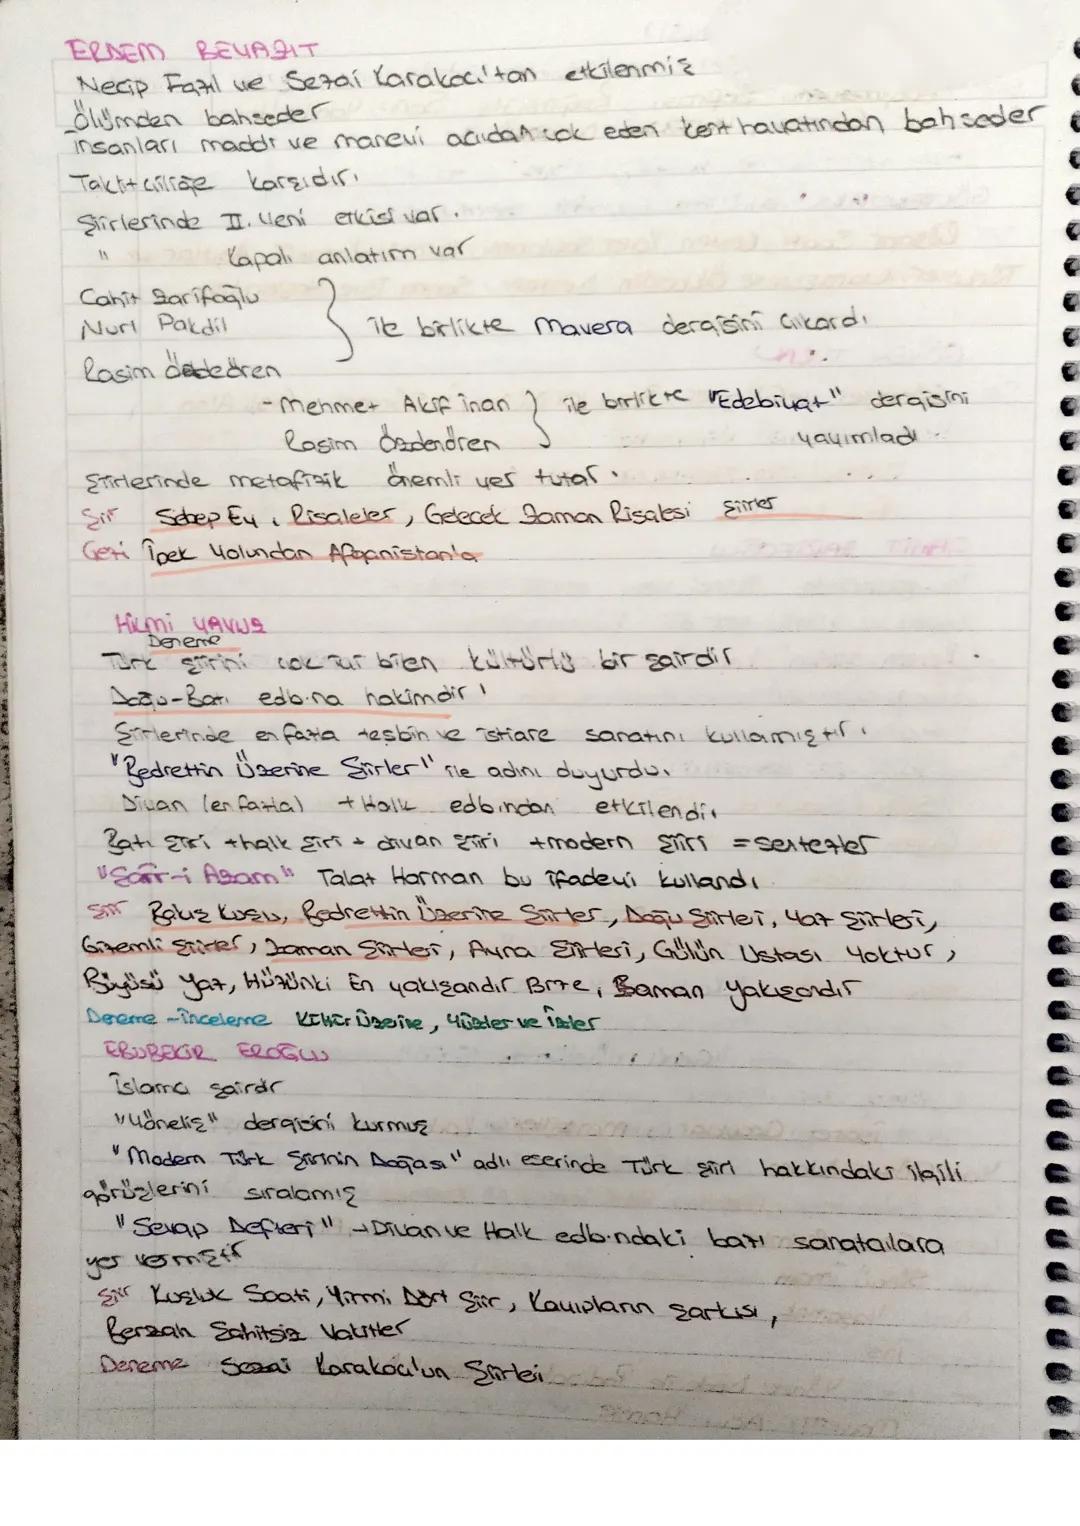 ERDEM BEYAZIT
Necip Fazıl ve Sezai Karakoç'tan etkilenmiş
Ölümden bahseder
insanları maddi ve manevi açıdan yok eden kent hayatından bahseder
Taklitçiliğe karşıdır.
Şiirlerinde II. Yeni etkisi var.
" Kapalı anlatım var
Cahit Zarifoğlu
Nuri Pakdil } ile birlikte Mavera dergisini çıkardı
Rasim
-Mehmet Akif İnan } ile birlikte "Edebiyat" dergisini
Rasim Özdenören yayımladı.
Şiirlerinde metafizik önemli yer tutar.
Şiir Sebep Ey, Risaleler, Gelecek Zaman Risalesi şiirler
Gezi İpek Yolundan Afganistan'a
Hilmi YAVUZ
Deneme
Türk şiirini çok iyi bilen kültürlü bir şairdir
Doğu-Batı edb.na hakimdir
Şiirlerinde en fazla teşbih ve istiare sanatını kullanmıştır.
"Bedrettin Üzerine Şiirler" ile adını duyurdu.
Divan (en fazla) + Halk edb.ından etkilendi.
Batı şiiri + halk şiiri + divan şiiri + modern şiiri = sentezler
"Şair-i Azam" Talat Harman bu ifadeyi kullandı
Şiir Bakış Kuşu, Bedrettin Üzerine Şiirler, Doğu Şiirleri, Yaz Şiirleri,
Gizemli Şiirler, Zaman Şiirleri, Ayna Şiirleri, Gülün Ustası Yoktur,
Büyüsü Yaz, Hüzünki En yakışandır Bize, Zaman yakışandır
Deneme-inceleme Kültür Üzerine, Yüzler ve İzler
EBUBEKİR EROĞLU
İslamcı şairdir
"Yöneliş" dergisini kurmuş
"Modern Türk Şiirinin Doğası" adlı eserinde Türk şiiri hakkındaki ilgili
görüşlerini sıralamış
"Sevap Defteri" → Divan ve Halk edb.ndaki bazı sanatçılara
yer vermiştir
Şiir Kuşluk Saati, Yirmi Dört Şiir, Kayıpların Şarkısı,
Berzah Şahitsiz Vakitler
Deneme Sezai Karakoç'un Şiirleri